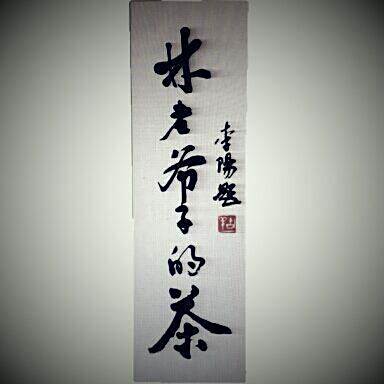 林老爷子的茶
李陽題